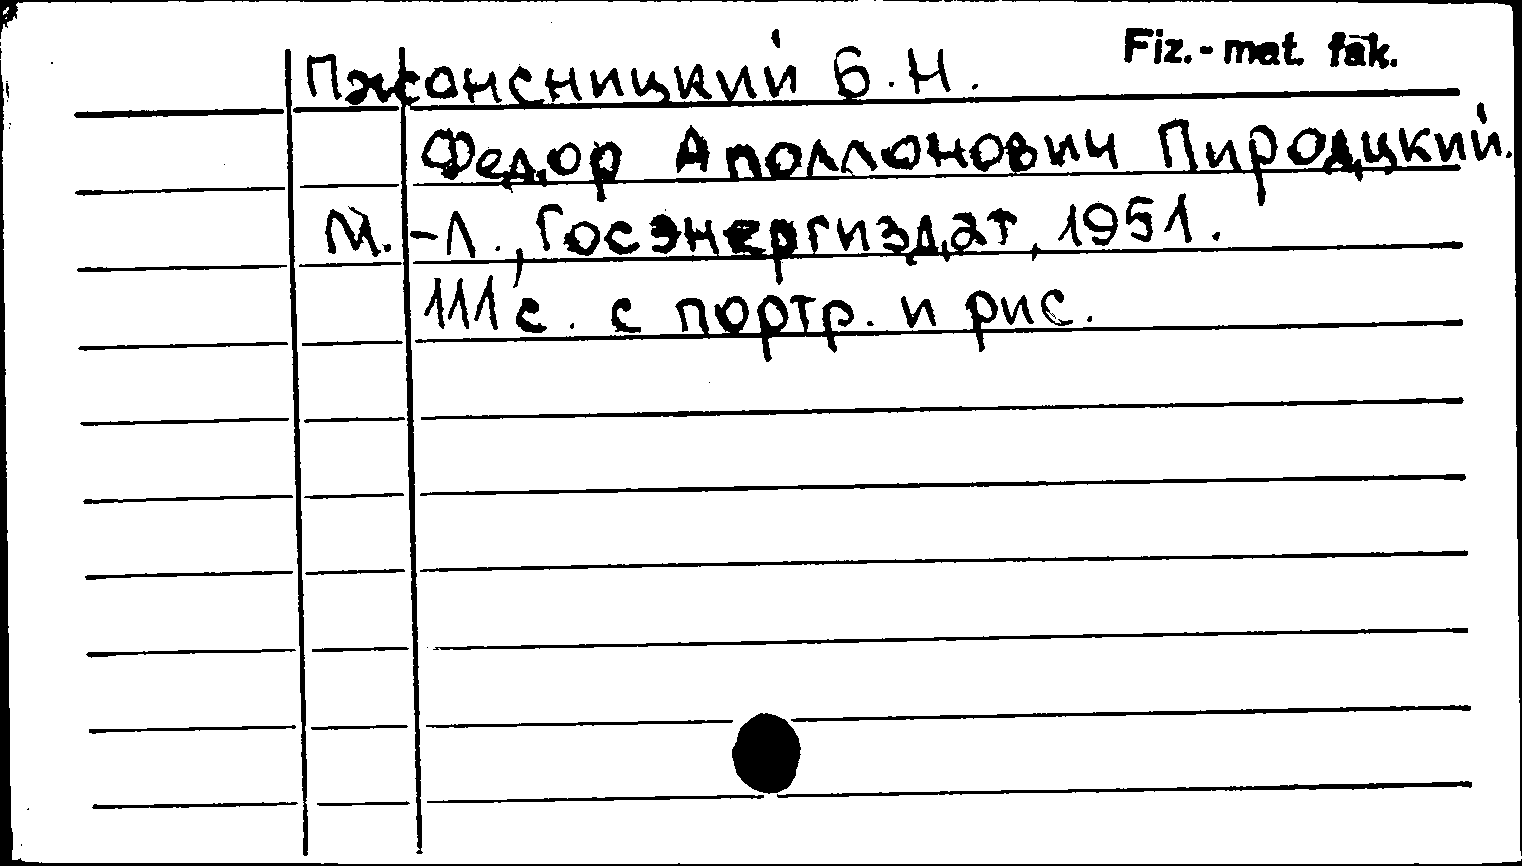 Fiz.-mat. fak.
Пжонсницкий Б.Н.
Федор Аполлонович Пироцкий.
М.-Л., Госэнергиздат, 1951.
111 с. с портр. и рис.